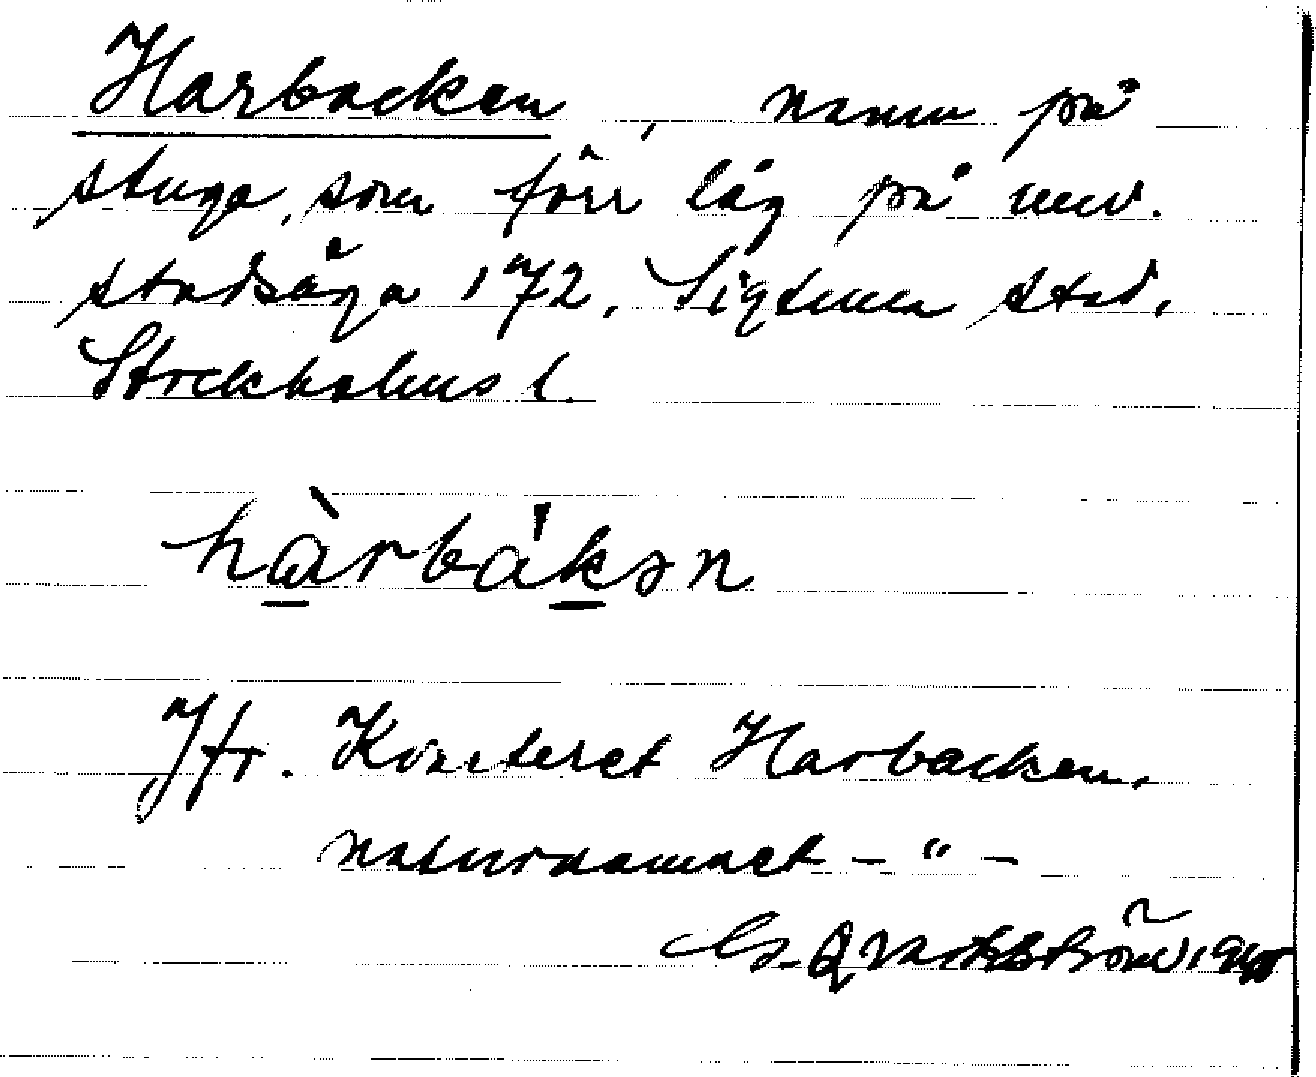 Harbacken, namn på
stuga, som förr låg på nuv.
stadsäga 172, Sigtuna stad,
Stockholms l.
hàrbákən
Jfr. Kvarteret Harbacken,
naturnamnet – " –
G. Qvarnström 1940